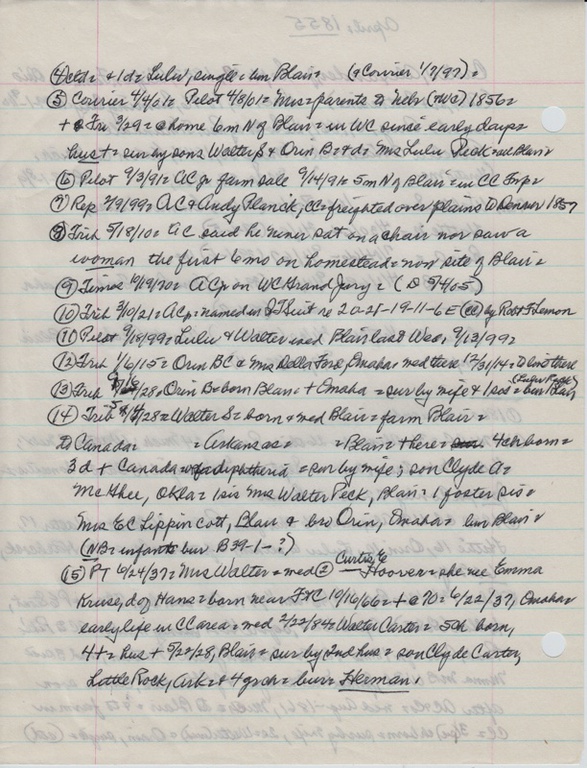 ④ctd= + 1d= Lulu, single= bur Blair= (& Courier 1/7/97)=
⑤ Courier 4/4/01= Pilot 4/8/01= Mrs= parents to Nebr (WC) 1856=
+ Fri 3/29= @ home 6m N of Blair= in WC since early days=
hus+= sur by sons Walter S & Orin B= & d= Mrs Lulu Peck= all Blair=
⑥ Pilot 9/3/91= AC Jr farm sale 9/14/91= 5m N of Blair= in CC Tnp=
⑦ Rep 2/9/99= AC & Andy Planck, CC= freighted over plains to Denver 1857
⑧ Trib 5/18/10= AC said he never sat on a chair nor saw a
woman the first 6 mo on homestead= now site of Blair=
⑨ Times 10/19/70= AC on WC Grand Jury= (D 9/4/05)
⑩ Trib 3/10/21= AC= named in QT Suit re 20-25-19-11-6E (CC) by Robt F Lemon
⑪ Pilot 9/18/99= Lulu & Walter Peck med Blair last Wed, 9/13/99=
⑫ Trib 1/6/15= Orin BC & Mrs Della Ford, Omaha med there 12/31/14= to live there
⑬ Trib /28= Orin B= born Blair= + Omaha= sur by wife & 1 sis (Lulu Peck)= bur Blair
⑭ Trib /28= Walter S= born & med Blair= farm Blair=
to Canada= = Arkansas= = Blair= + here= 4ch born=
3d + Canada diphtheria = sur by wife; son Clyde A=
McGhee, Okla= 1 sis Mrs Walter Peck, Blair= 1 foster sis=
Mrs EC Lippincott, Blair & bro Orin, Omaha= bur Blair=
(NB= infants bur B39-1-?)
⑮ PT 6/24/37= Mrs Walter= med ② Curtis E Hoover= she nee Emma
Kruse, d of Hans= born near FtC 10/16/66= + @ 70= 6/22/37, Omaha=
early life in CC area= med 2/22/84= Walter Carter= 5ch born,
4+= hus + 5/22/28, Blair= sur by 2nd hus= son Clyde Carter,
Little Rock, Ark= & 4 grch= bur= Herman.